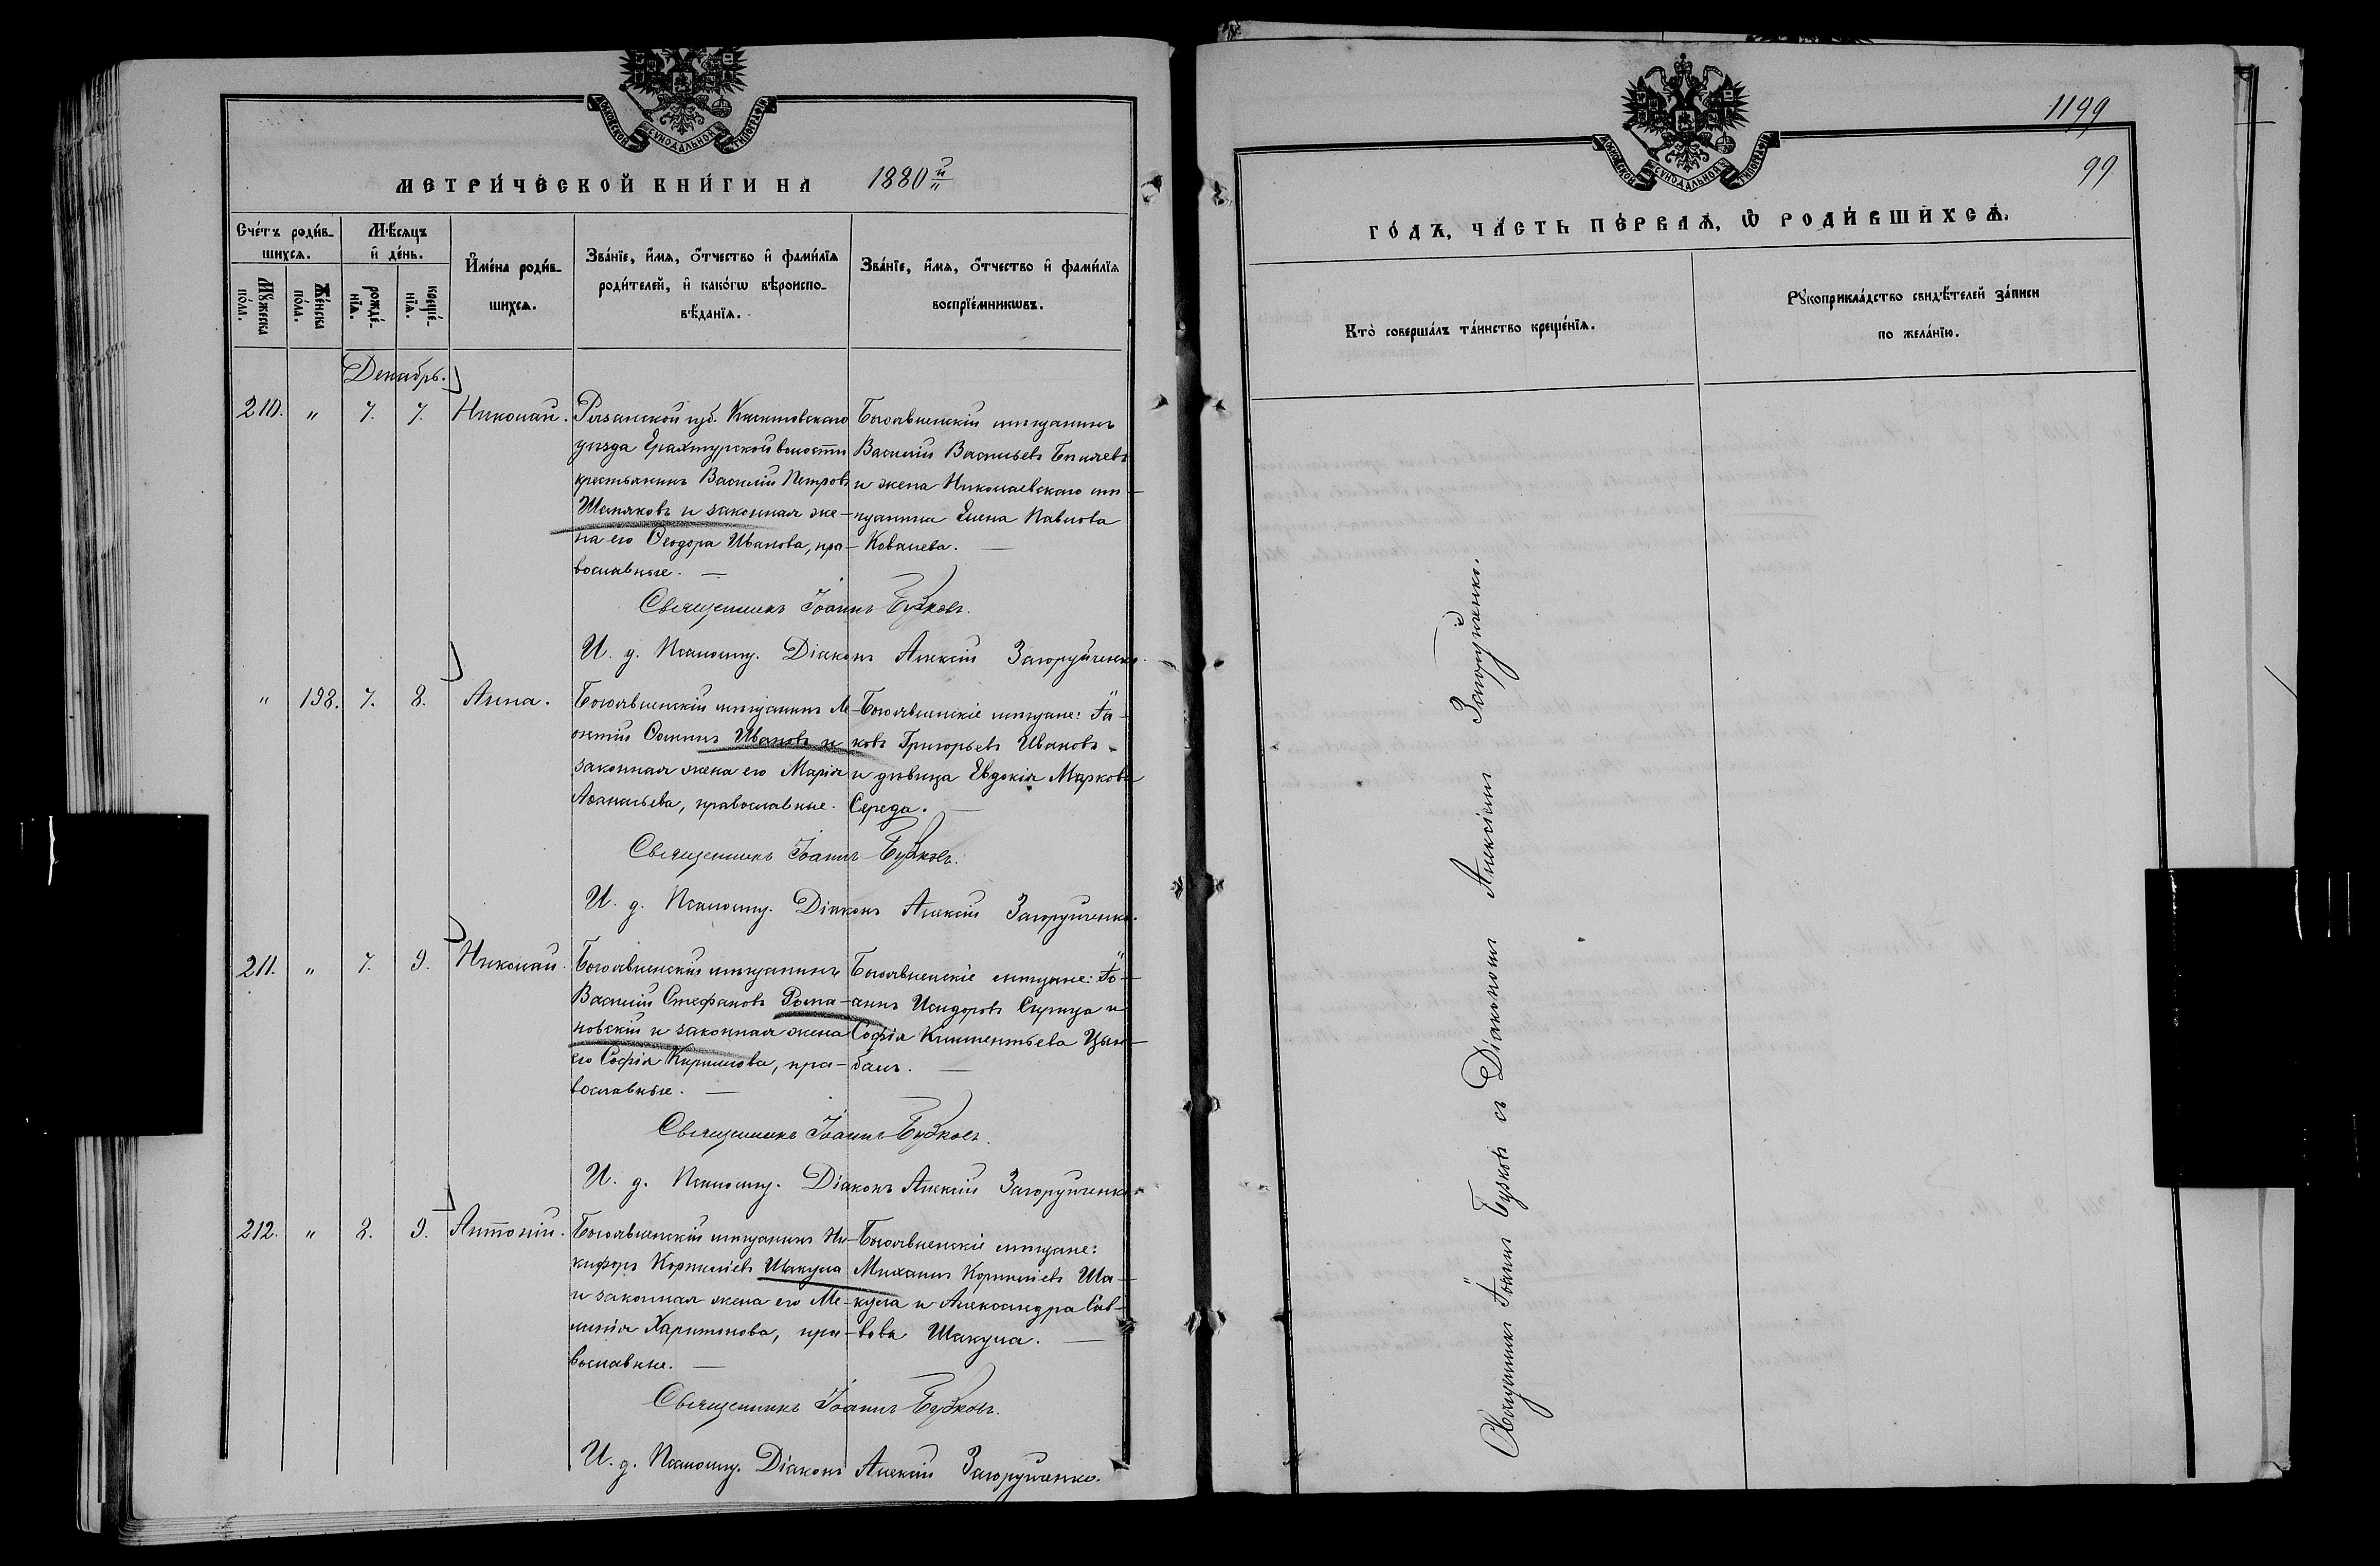 МОСКОВСКОЙ СѴНОДАЛЬНОЙ ТИПОГРАФІИ
МЕТРИ́ЧЕСКОЙ КНИ́ГИ НА 1880й
Сче́тъ роди́в-
шихсѧ.
Мꙋ́жеска
по́ла.
Же́нска
по́ла.
Мѣ́сѧцъ
и҆ де́нь.
рожде́-
нїѧ.
креще́-
нїѧ.
И҆мена̀ роди́в-
шихсѧ.
Зва́нїе, и҆́мѧ, ѻ҆́тчество и҆ фами́лїѧ
роди́телей, и҆ како́гѡ вѣроиспо-
вѣ́данїѧ.
Зва́нїе, и҆́мѧ, ѻ҆́тчество и҆ фами́лїѧ
воспрїе́мникѡвъ.
Декабрь.
210. " 7. 7. Николай.
Рязанской губ. Касимовскаго
уѣзда Ерахтурской волости
крестьянинъ Василій Петровъ
Шемяковъ и законная же-
на его Ѳеодора Иванова, пра-
вославные. —
Богоявленскій мѣщанинъ
Василій Васильевъ Бѣляевъ
и жена Николаевскаго мѣ-
щанина Елена Павлова
Ковалева. —
Священникъ Іоаннъ Бужковъ.
И. д. Псаломщ. Діаконъ Алексій Загоруйченко.
" 198. 7. 8. Анна.
Богоявленскій мѣщанинъ Ле-
онтій Ѳоминъ Ивановъ и
законная жена его Марія
Аѳанасьева, православные.
Богоявленскіе мѣщане: Іа-
ковъ Григорьевъ Ивановъ
и дѣвица Евдокія Маркова
Середа. —
Священникъ Іоаннъ Бужковъ.
И. д. Псаломщ. Діаконъ Алексій Загоруйченко.
211. " 7. 9. Николай.
Богоявленскій мѣщанинъ
Василій Стефановъ Рома-
новскій и законная жена
его Софія Кириллова, пра-
вославные. —
Богоявленскіе мѣщане: Іо-
аннъ Исидоровъ Скрица и
Софія Климентьева Цым-
балъ. —
Священникъ Іоаннъ Бужковъ.
И. д. Псаломщ. Діаконъ Алексій Загоруйченко.
212. " 8. 9. Антоній.
Богоявленскій мѣщанинъ Ни-
кифоръ Корниліевъ Шакула
и законная жена его Ме-
ланія Харитонова, пра-
вославные. —
Богоявленскіе мѣщане:
Михаилъ Корниліевъ Ша-
кула и Александра Сав-
вова Шакула. —
Священникъ Іоаннъ Бужковъ.
И. д. Псаломщ. Діаконъ Алексій Загоруйченко.
1199
99
МОСКОВСКОЙ СѴНОДАЛЬНОЙ ТИПОГРАФІИ
ГО́ДЪ, ЧА́СТЬ ПЕ́РВАѦ, Ѡ҆ РОДИ́ВШИХСѦ.
Кто̀ соверша́лъ та́инство креще́нїѧ.
Рꙋкоприкла́дство свидѣ́телей за́писи
по жела́нїю.
Священникъ Іоаннъ Бужковъ съ Діакономъ Алексіемъ Загоруйченко.